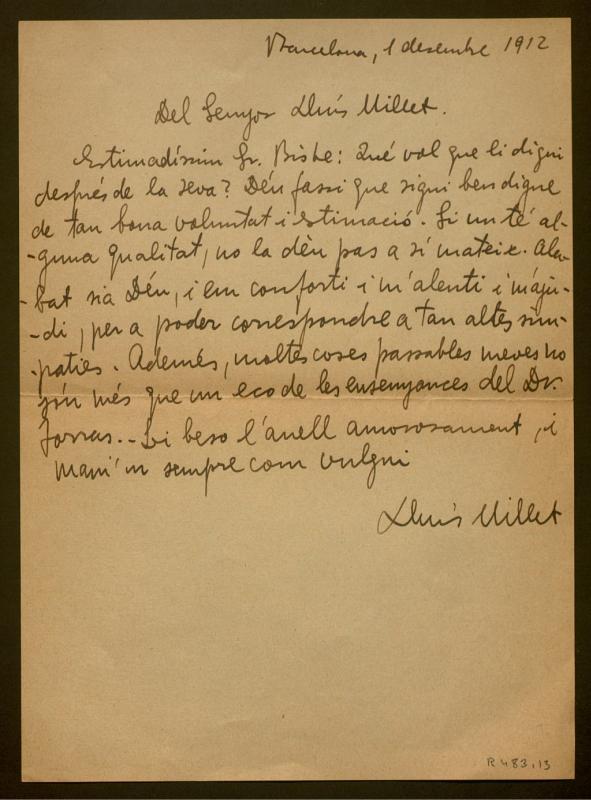 Barcelona, 1 desembre 1912
Del Senyor Lluís Millet.
Estimadíssim Sr. Bisbe: Qué vol que li digui
després de la seva? Déu fassi que sigui ben digne
de tan bona voluntat i estimació. Si un té al-
-guna qualitat, no la déu pas a sí mateix. Ala-
-bat sia Déu, i em conforti i m'alenti i m'aju-
-di, per a poder correspondre a tan altes sim-
-paties. Además, moltes coses passables meves no
són més que un eco de les ensenyances del Dr.
Torras.- Li beso l'anell amorosament, i
mani'm sempre com vulgui
Lluís Millet
R 483,13